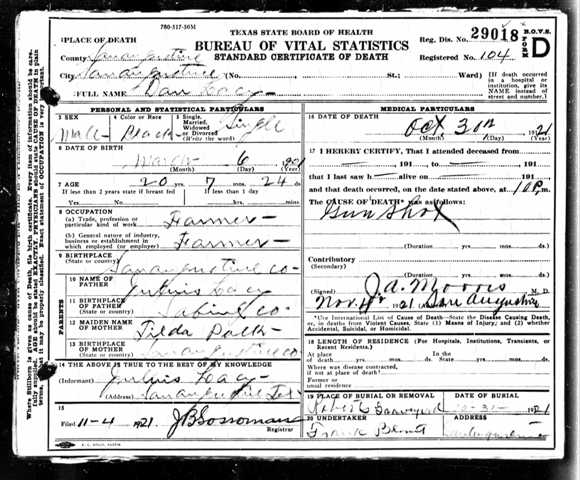 780-317-50M
TEXAS STATE BOARD OF HEALTH
BUREAU OF VITAL STATISTICS
STANDARD CERTIFICATE OF DEATH
Reg. Dis. No. 29018
B.O.V.S. FORM D
Registered No. 104
1 PLACE OF DEATH
County San Augustine
City San Augustine (No. St.; Ward)
[If death occurred in a hospital or institution, give its NAME instead of street and number.]
2 FULL NAME Dan Lacy
PERSONAL AND STATISTICAL PARTICULARS
3 SEX Male
4 Color or Race Black
5 Single, Married, Widowed or Divorced (Write the word) Single
6 DATE OF BIRTH
March 6
(Month) (Day) (Year)
7 AGE 20 yrs. 7 mos. 24 ds.
If less than 2 years state if breast fed Yes No
If less than 1 day hrs. or min.
8 OCCUPATION
(a) Trade, profession or particular kind of work Farmer
(b) General nature of industry, business or establishment in which employed (or employer) Farmer
9 BIRTHPLACE (State or country) San Augustine Co
PARENTS
10 NAME OF FATHER Julius Lacy
11 BIRTHPLACE OF FATHER (State or country) Sabine Co
12 MAIDEN NAME OF MOTHER Tilda Polk
13 BIRTHPLACE OF MOTHER (State or country) San Augustine Co
14 THE ABOVE IS TRUE TO THE BEST OF MY KNOWLEDGE
(Informant) Julius Lacy
(Address) San Augustine Tex
15
Filed 11-4 1921 Registrar
MEDICAL PARTICULARS
16 DATE OF DEATH
Oct 30th 1921
(Month) (Day) (Year)
17 I HEREBY CERTIFY, That I attended deceased from
191 , to 191
that I last saw h alive on 191
and that death occurred, on the date stated above, at 10 P.m.
The CAUSE OF DEATH* was as follows:
Gun Shot
(Duration) yrs. mos. ds.
Contributory (Secondary)
(Duration) yrs. mos. ds.
(Signed) J.A. Moores M. D.
Nov. 1921 San Augustine
*Use International List of Cause of Death—State the Disease Causing Death, or, in deaths from Violent Causes, State (1) Means of Injury; and (2) whether Accidental, Suicidal, or Homicidal.
18 LENGTH OF RESIDENCE (For Hospitals, Institutions, Transients, or Recent Residents.)
At place of death yrs. mos. ds. State yrs. mos. ds.
Where was disease contracted, if not at place of death?
Former or usual residence
19 PLACE OF BURIAL OR REMOVAL Roberts Graveyard
DATE OF BURIAL 1921
20 UNDERTAKER Frank Blount
ADDRESS San Augustine